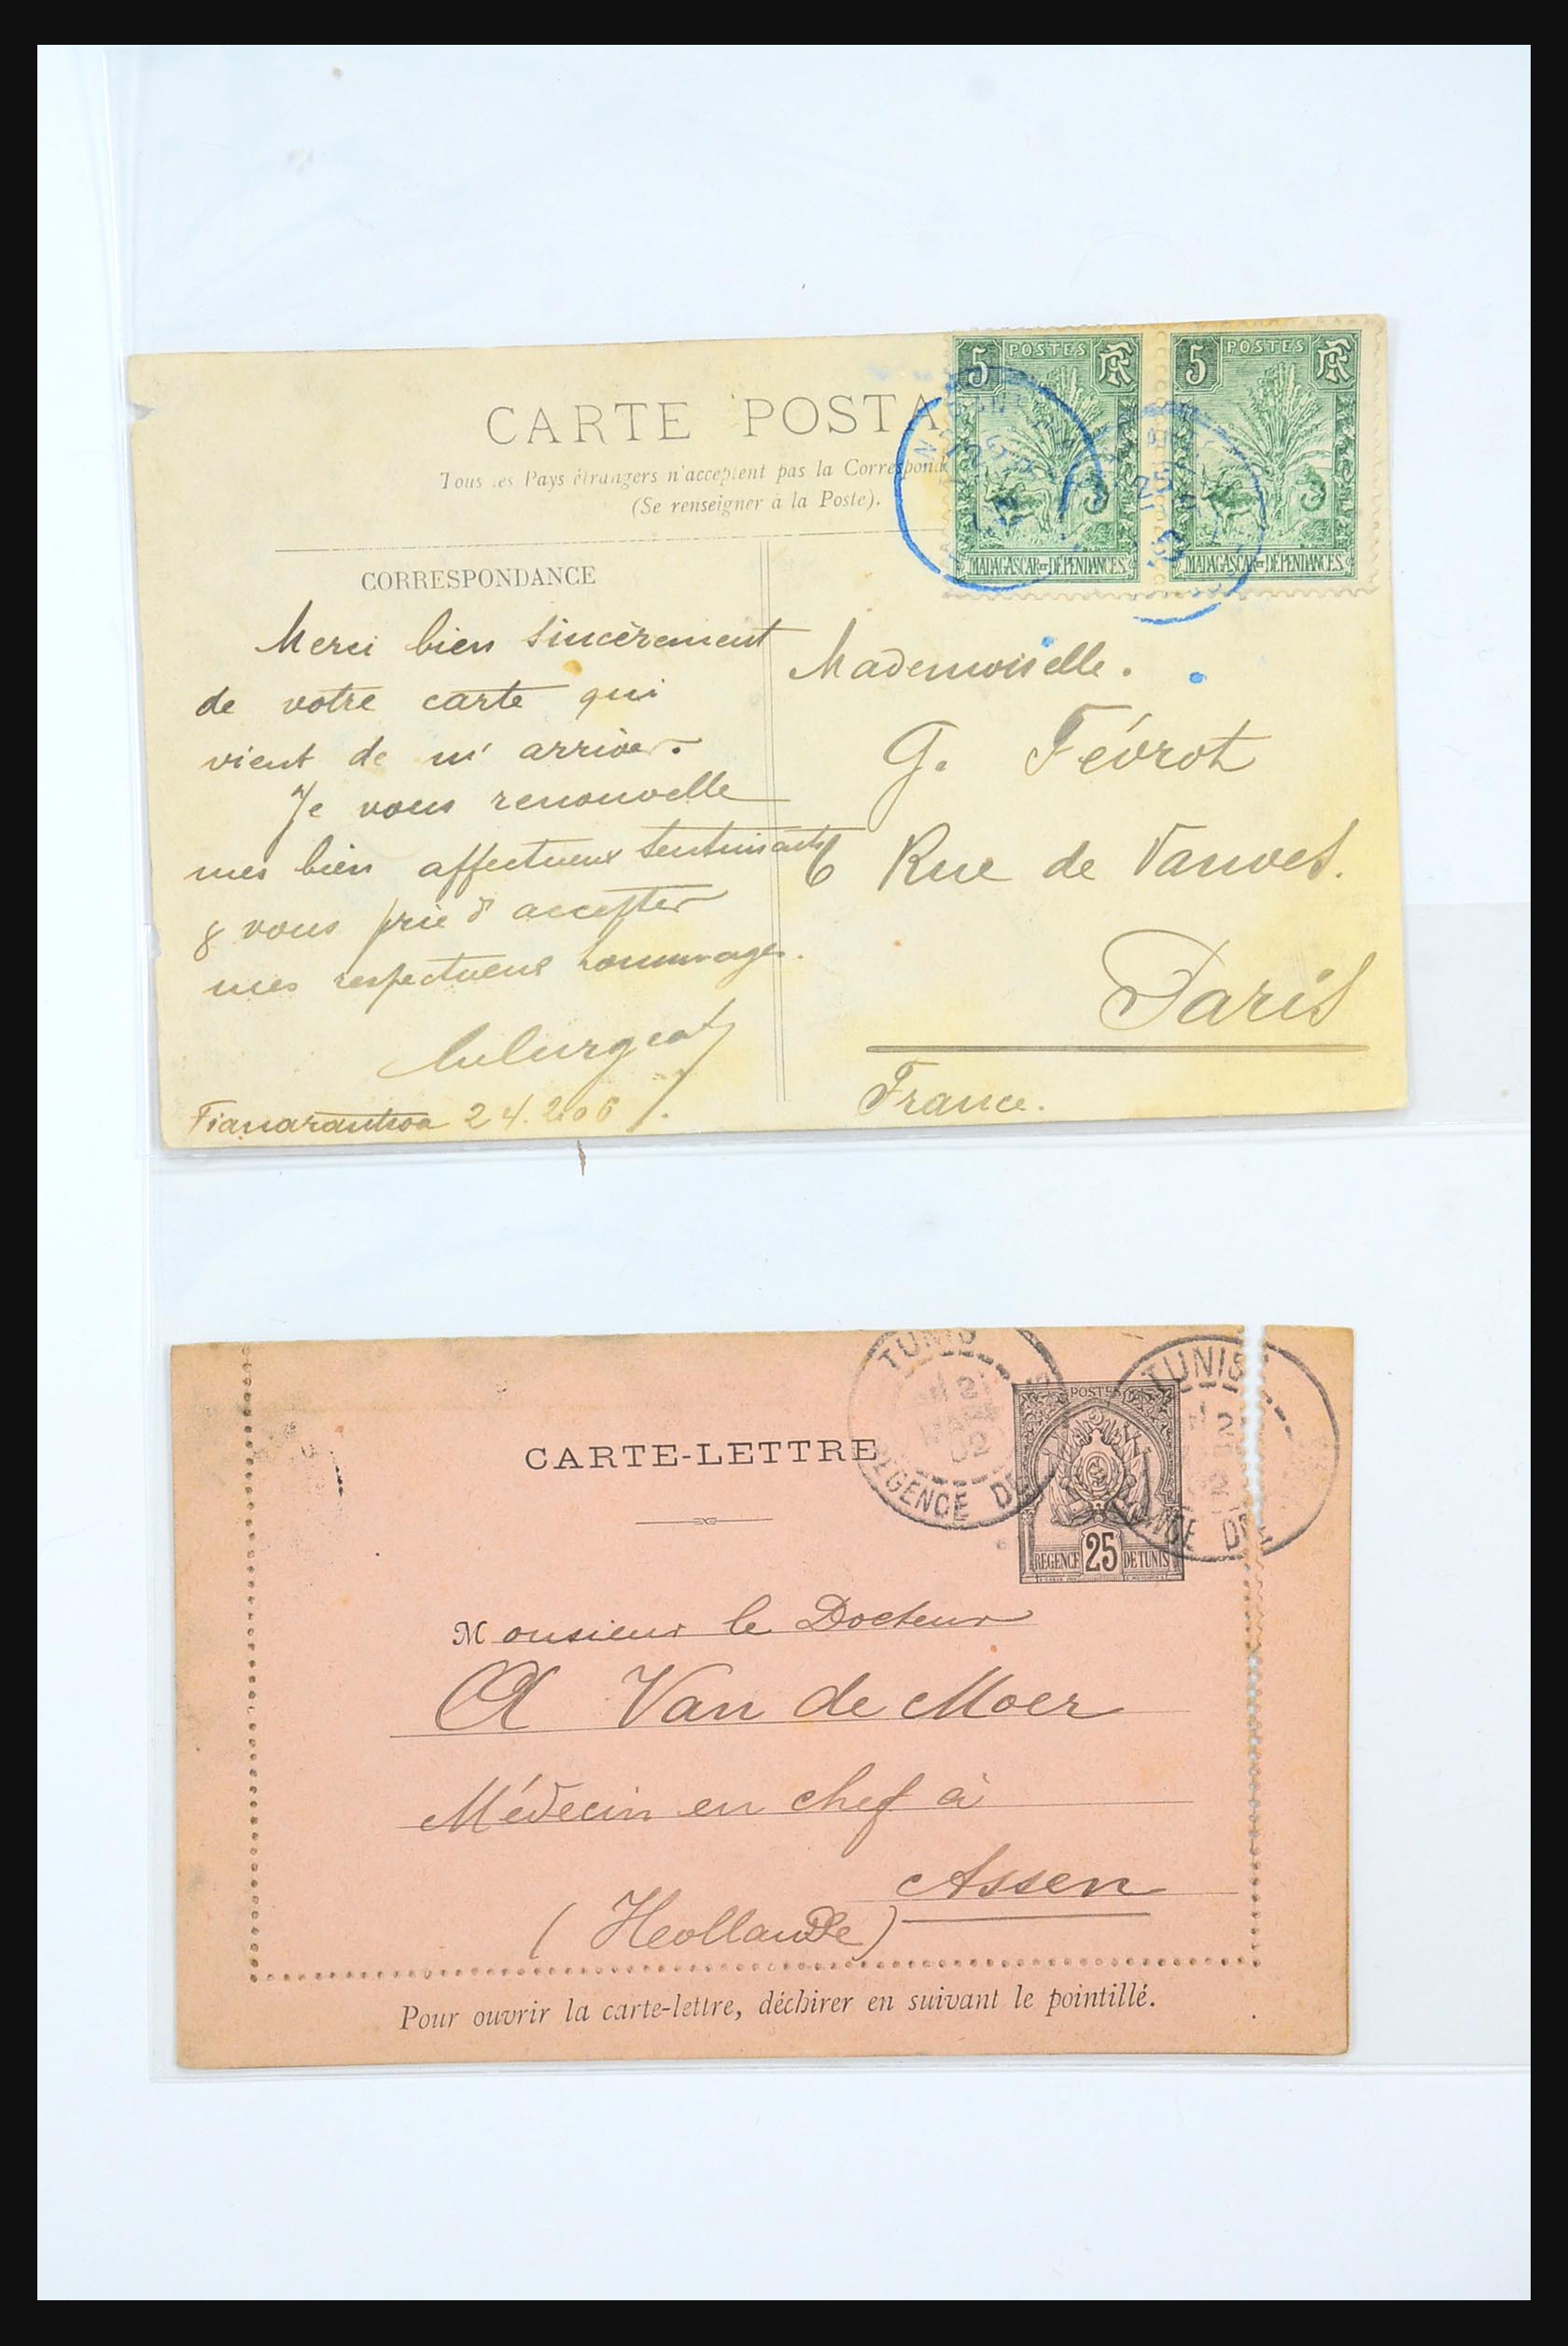 CARTE POSTA
Tous les Pays étrangers n'acceptent pas la Correspond
(Se renseigner à la Poste).
5 POSTES RF
MADAGASCAR ET DÉPENDANCES
5 POSTES RF
MADAGASCAR ET DÉPENDANCES
CORRESPONDANCE
Merci bien sincèrement
de votre carte qui
vient de m'arriver.
Je vous renouvelle
mes bien affectueux sentiments
& vous prie d'accepter
mes respectueux hommages.
Fianarantsoa 24.2.06
Mademoiselle.
G. Févrot
6 Rue de Vanves.
Paris
France.
CARTE-LETTRE
TUNIS
02
REGENCE DE
POSTES
REGENCE 25 DE TUNIS
TUNIS
Monsieur le Docteur
A Van de Moer
Médecin en chef à
Assen
(Hollande)
Pour ouvrir la carte-lettre, déchirer en suivant le pointillé.